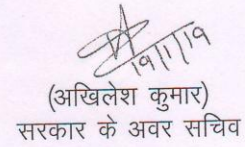 19/1/19
(अखिलेश कुमार)
सरकार के अवर सचिव